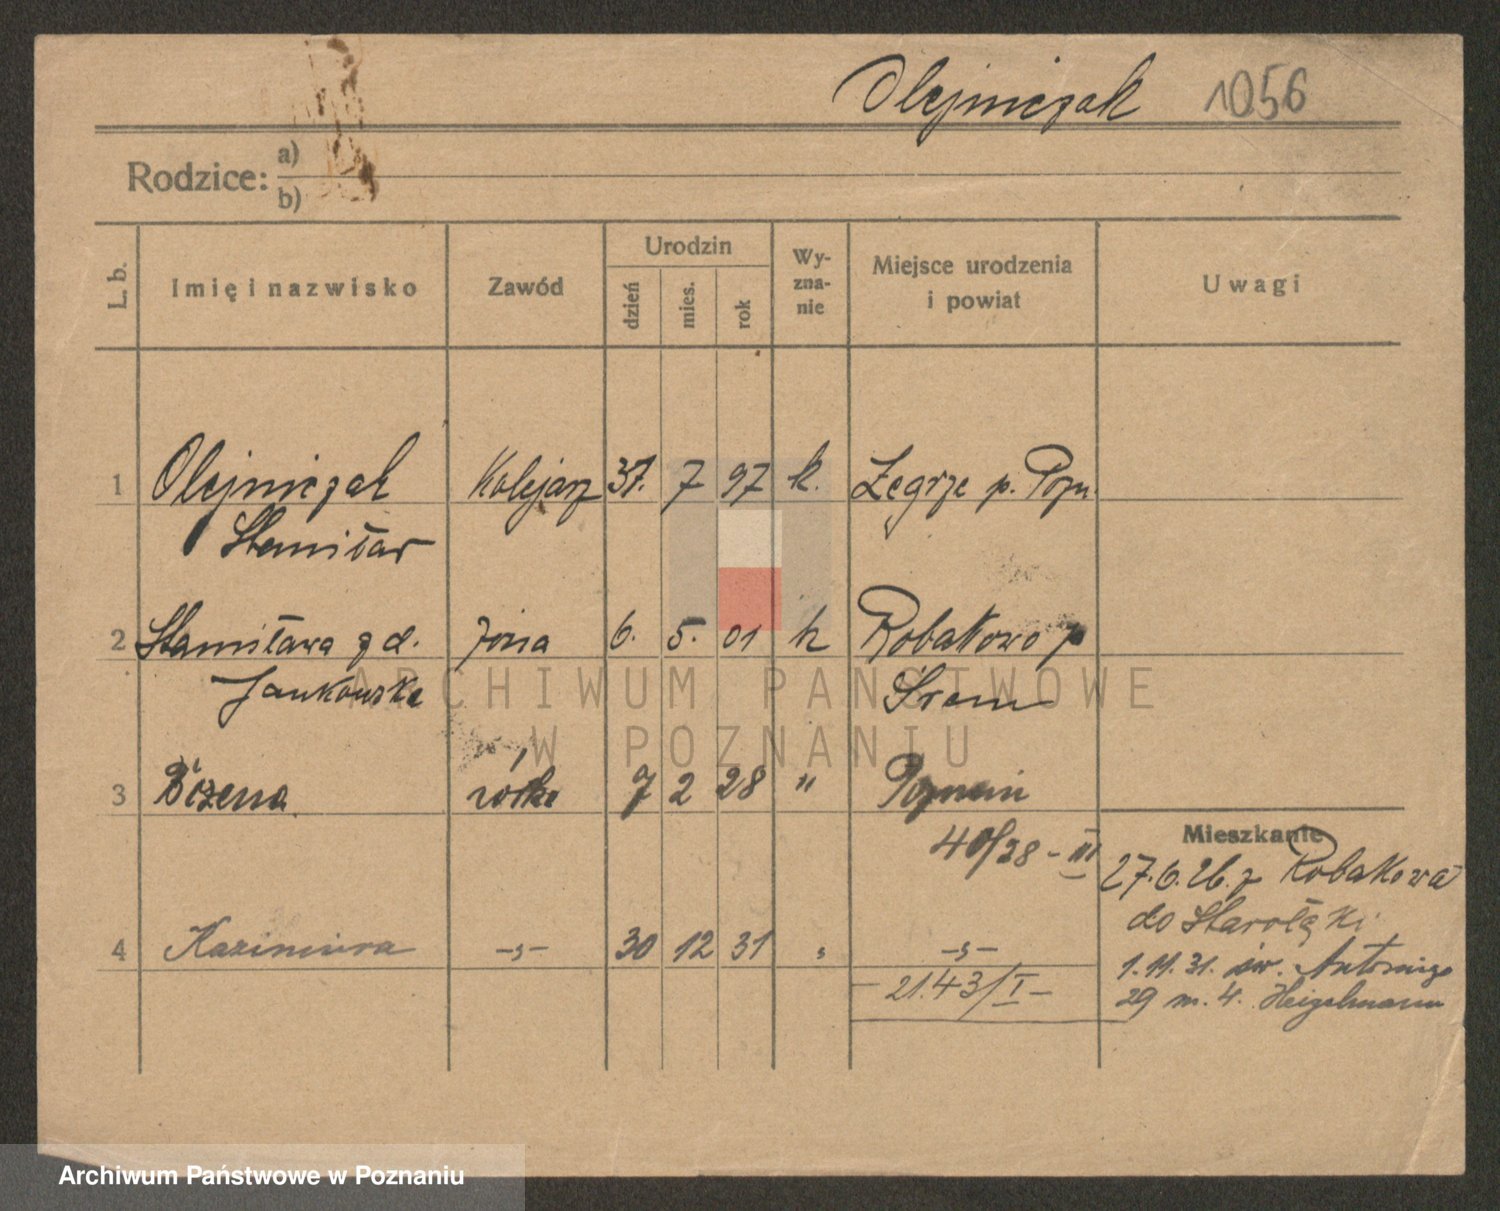 Olejniczak 1056
Rodzice: a)
b)
L. b.
Imię i nazwisko
Zawód
Urodzin
dzień
mies.
rok
Wy-
zna-
nie
Miejsce urodzenia
i powiat
Uwagi
1 Olejniczak Kolejarz 31. 7 97 k. Żegrze p. Pozn.
Stanisław
2 Stanisława z d. żona 6. 5. 01 k Robakowo p
Jankowska Śrem
3 Bożena córka 7 2 28 " Poznań
40/38 - III
4 Kazimiera -„- 30 12 31 „ -„-
- 21.43/I -
Mieszkanie
27.6.26. z Robakowa
do Starołęki
1.11.31. św. Antoniego
29 m. 4. Heigelmann
ARCHIWUM PAŃSTWOWE
W POZNANIU
Archiwum Państwowe w Poznaniu